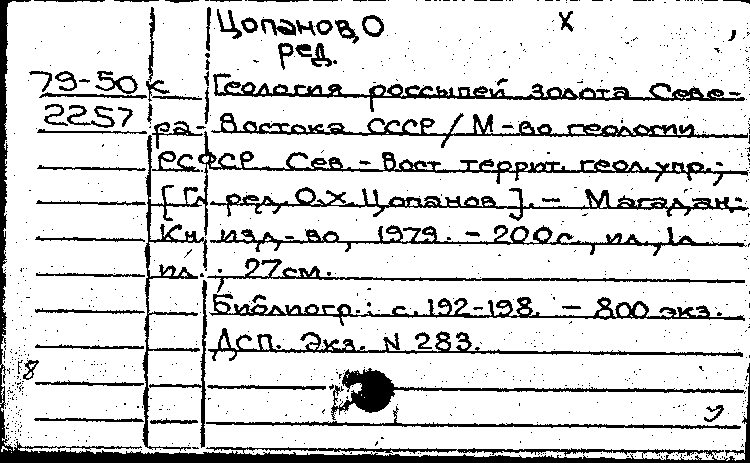 Цопанов, О Х
ред.
79-50к Геология россыпей золота Севе-
2257 ра-Востока СССР / М-во геологии
РСФСР Сев.-Вост террит. геол.упр.;
[Гл ред. О.Х. Цопанов]. – Магадан:
Кн изд-во, 1979. – 200с., ил., 1л
ил.; 27см.
Библиогр.: с. 192-198. – 800 экз.
ДСП. Экз. N 283.
8